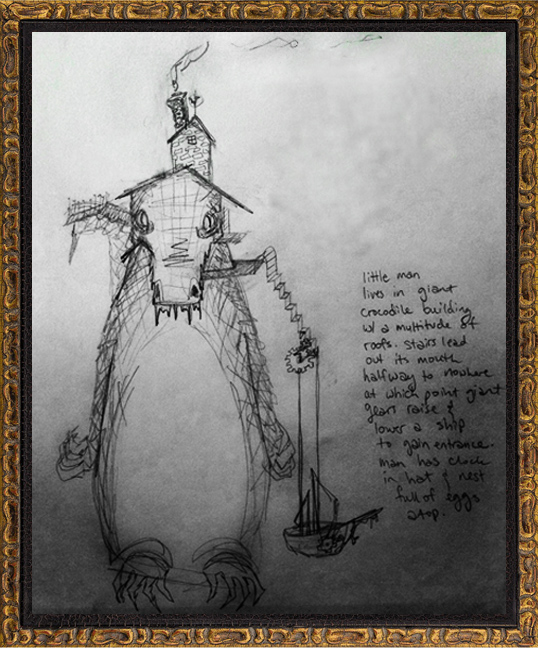 little man
lives in giant
crocodile building
w/ a multitude of
roofs. stairs lead
out its mouth
halfway to nowhere
at which point giant
gears raise &
lower a ship
to gain entrance.
man has clock
in hat & nest
full of eggs
atop.